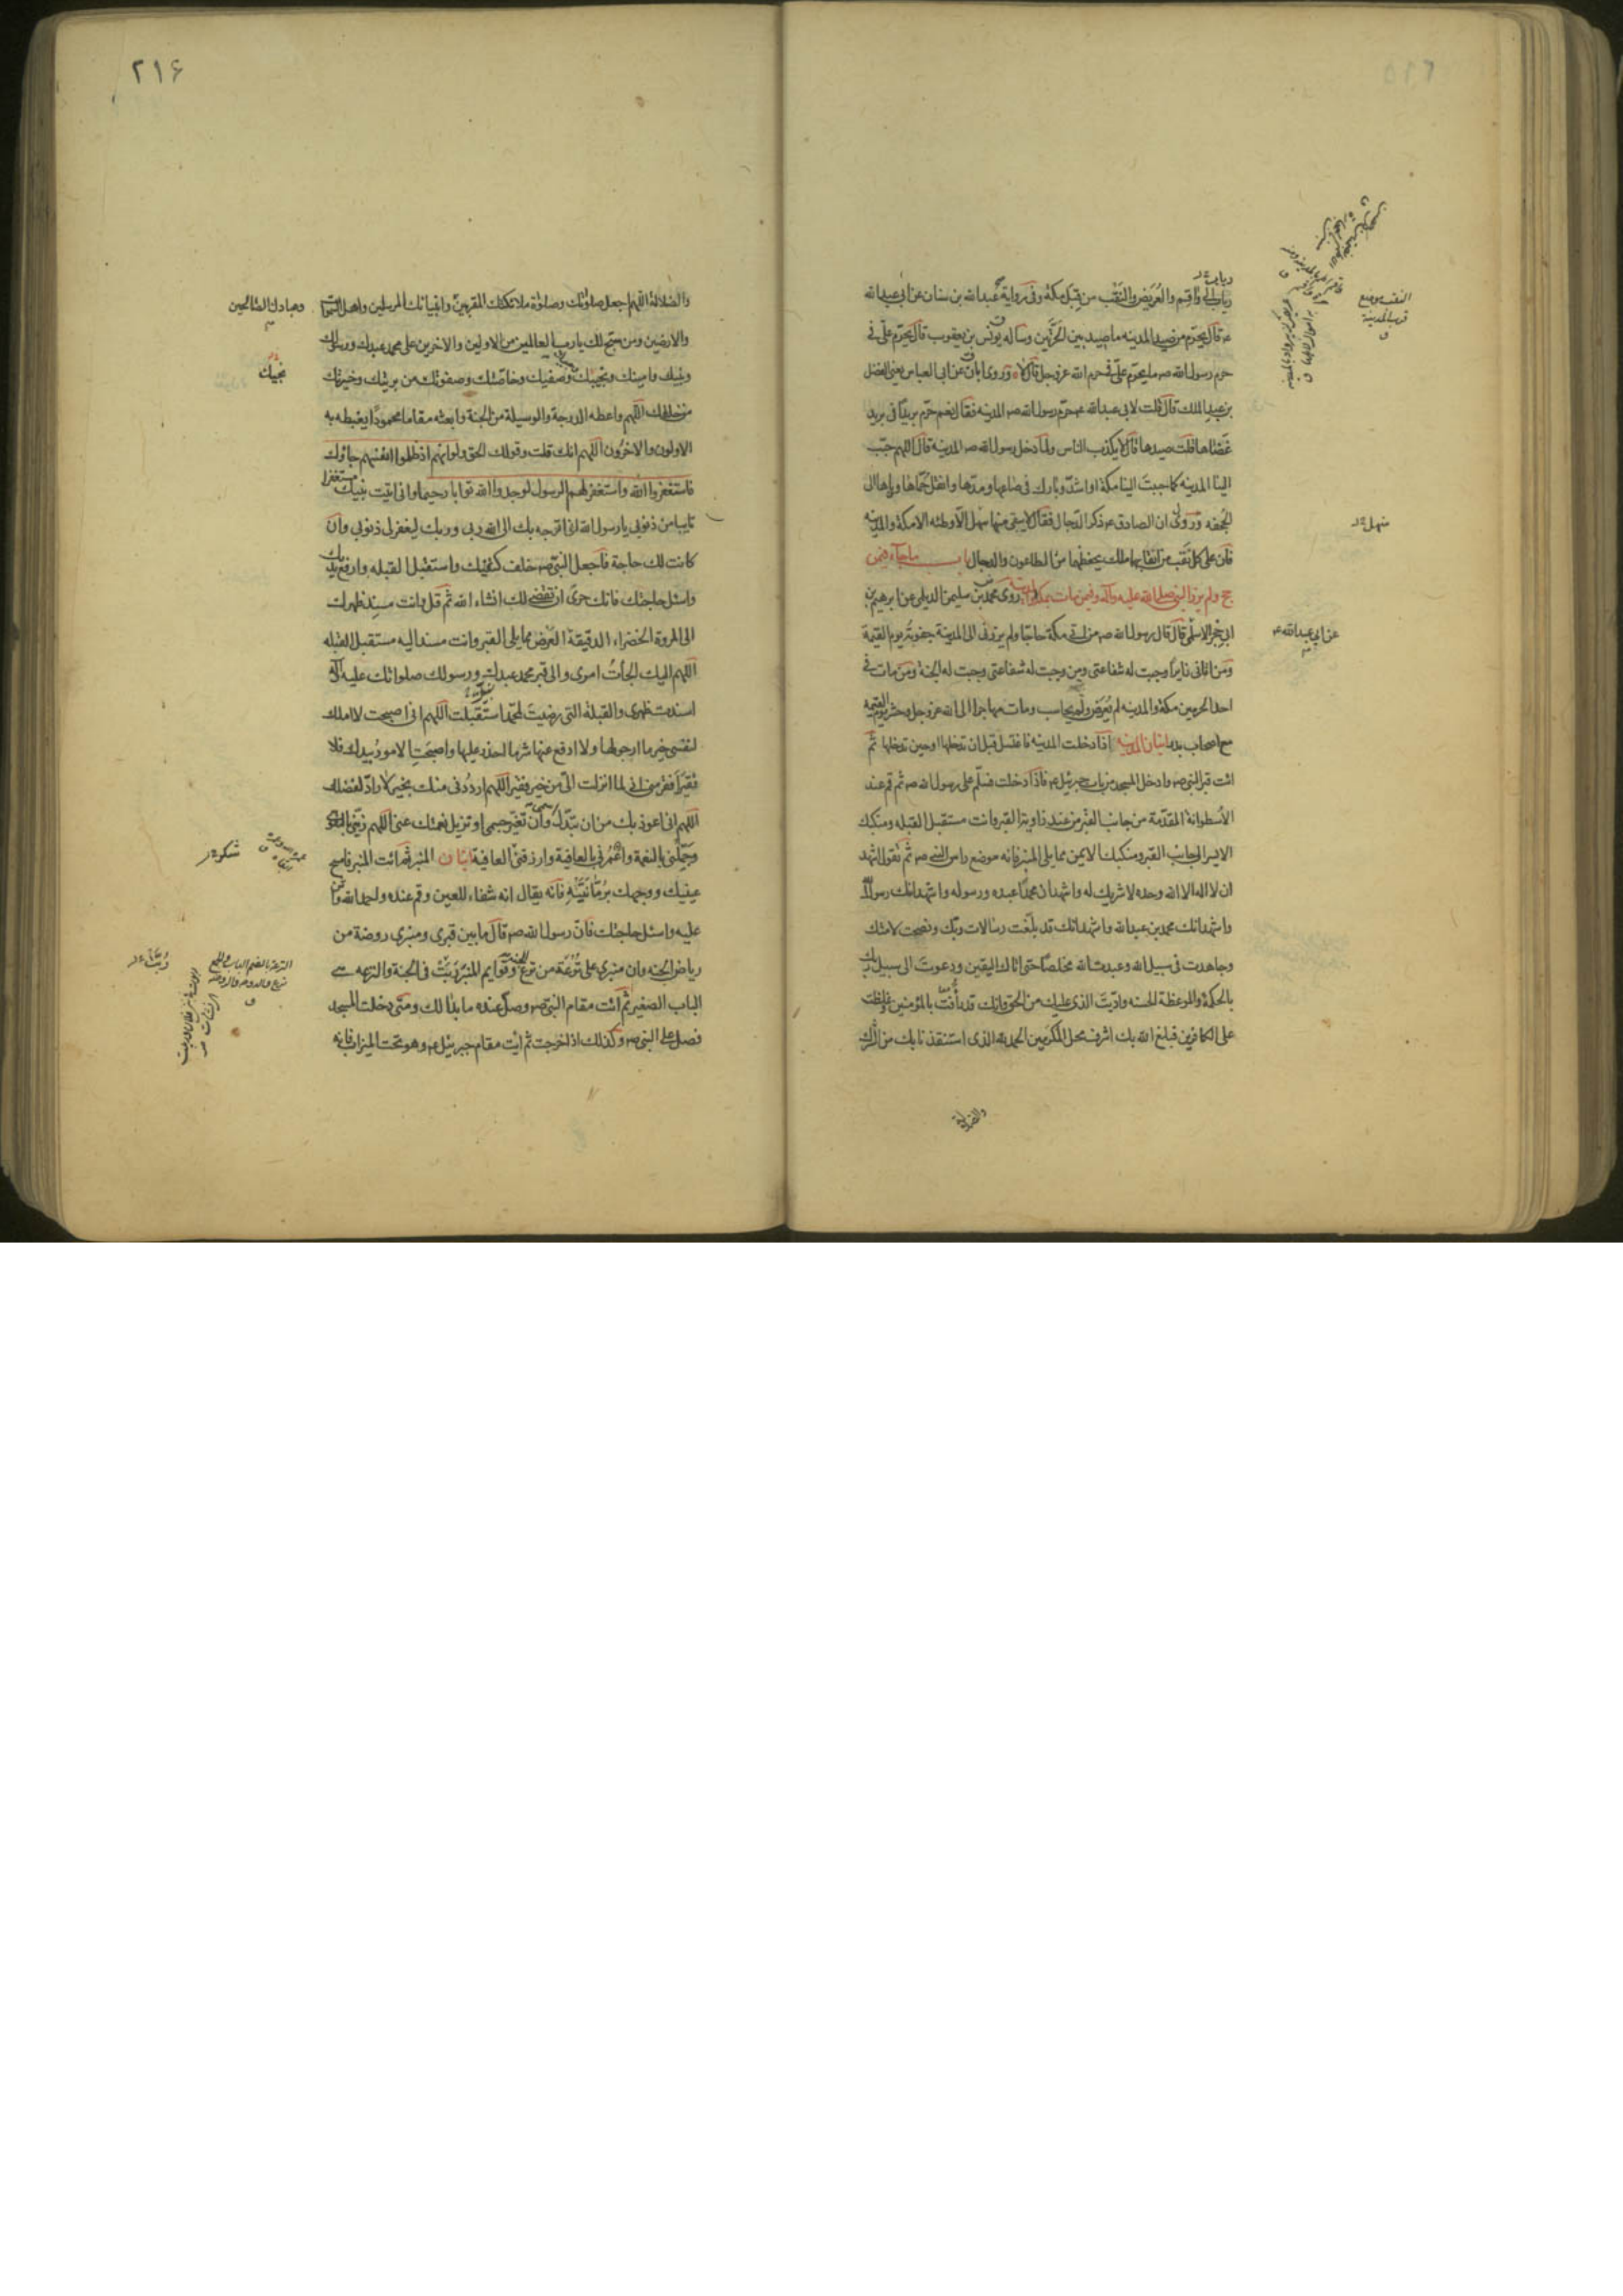 رباب الى واقم والعريض والنقب من قبل مكة وفى رواية عبدالله بن سنان عن ابى عبدالله
ع قال يحرم من صيد المدينه ما صيد بين الحرتين وساله يونس بن يعقوب قال يحرم على فى
حرم رسول الله ص ما يحرم على فى حرم الله عز وجل قال لا وروى ابان عن ابى العباس يعنى الفضل
بن عبد الملك قال قلت لابى عبدالله ع حرم رسول الله ص المدينه فقال نعم حرم بريدا فى بريد
غضاها قلت صيدها قال لا يكذب الناس ولما دخل رسول الله ص المدينة قال اللهم حبب
الينا المدينه كما حببت الينا مكة او اشد وبارك فى صاعها ومدها وانقل حماها وباها الى
الجحفه وروى ان الصادق ع ذكر الدجال فقال لا يبقى منها سهل الا وطئه الا مكة والمدينه
فان على كل نقب من انقابهما ملك يحفظهما من الطاعون والدجال باب ما جاء فيمن
حج ولم يزر النبى صلى الله عليه وآله وفيمن مات بمكة روى محمد بن سليمن الديلمى عن ابرهيم بن
ابى حجر الاسلمى قال قال رسول الله ص من اتى مكة حاجا ولم يزرنى الى المدينة جفوته يوم القيمة
ومن اتانى زايرا وجبت له شفاعتى ومن وجبت له شفاعتى وجبت له الجنة ومن مات فى
احد الحرمين مكة والمدينه لم يعرض ولم يحاسب ومات مهاجرا الى الله عز وجل وحشر يوم القيمه
مع اصحاب بدر اتيان المدينه اذا دخلت المدينه فاغتسل قبل ان تدخلها او حين تدخلها ثم
ائت قبر النبى ص وادخل المسجد من باب جبرئيل ع فاذا دخلت فسلم على رسول الله ص ثم قم عند
الاسطوانة المقدمة من جانب القبر من عند زاوية القبر وانت مستقبل القبله ومنكبك
الايسر الى جانب القبر ومنكبك الايمن مما يلى المنبر فانه موضع راس النبى ص ثم تقول اشهد
ان لا اله الا الله وحده لا شريك له واشهد ان محمدا عبده ورسوله واشهد انك رسول الله
واشهد انك محمد بن عبدالله واشهد انك قد بلغت رسالات ربك ونصحت لامتك
وجاهدت فى سبيل الله وعبدت الله مخلصا حتى اتاك اليقين ودعوت الى سبيل ربك
بالحكمة والموعظة الحسنه واديت الذى عليك من الحق وانك قد رأفت بالمؤمنين وغلظت
على الكافرين فبلغ الله بك اشرف محل المكرمين الحمد لله الذى استنقذنا بك من الشرك
والضلالة
النقب موضع
قرب المدينة
منهل
عن ابى عبدالله ع
٢١۶
والضلالة اللهم اجعل صلوتك وصلوة ملائكتك المقربين وانبيائك المرسلين واهل السموات
وعبادك الصالحين
والارضين ومن سبح لك يا رب العالمين من الاولين والاخرين على محمد عبدك ورسولك
ونبيك وامينك ونجيبك وصفيك وخاصتك وصفوتك من بريتك وخيرتك
نجيك
من خلقك اللهم واعطه الدرجة والوسيلة من الجنة وابعثه مقاما محمودا يغبطه به
الاولون والاخرون اللهم انك قلت وقولك الحق ولو انهم اذ ظلموا انفسهم جاؤك
فاستغفروا الله واستغفر لهم الرسول لوجدوا الله توابا رحيما وانى اتيت نبيك مستغفرا
تايبا من ذنوبى يا رسول الله انى اتوجه بك الى الله ربى وربك ليغفر لى ذنوبى وان
كانت لك حاجة فاجعل النبى ص خلف كتفيك واستقبل القبله وارفع يديك
واسئل حاجتك فانك حرى ان تقضى لك انشاء الله ثم قل وانت مسند ظهرك
الى المروة الخضراء الدقيقة العرض مما يلى القبر وانت مسند اليه مستقبل القبله
اللهم اليك الجأت امرى والى قبر محمد عبدك ورسولك صلواتك عليه وآله
اسندت ظهرى والقبلة التى رضيت لمحمد استقبلت اللهم انى اصبحت لا املك
لنفسى خير ما ارجو لها ولا ادفع عنها شر ما احذر عليها واصبحت الامور بيدك فلا
فقير افقر منى انى لما انزلت الى من خير فقير اللهم ارددنى منك بخير لا راد لفضلك
اللهم انى اعوذ بك من ان تبدل اسمى وان تغير جسمى او تزيل نعمتك عنى اللهم زينى بالتقوى
وجملنى بالنعمة واغمرنى بالعافية وارزقنى العافية اتيان المنبر ثم ائت المنبر فامسح
شكر
عينيك ووجهك برمانتيه فانه يقال انه شفاء للعين وقم عنده واحمد الله واثن
عليه واسئل حاجتك فان رسول الله ص قال ما بين قبرى ومنبرى روضة من
رياض الجنه وان منبرى على ترعة من ترع الجنة وقوايم المنبر ربت فى الجنة والترعه هى
الترعة بالضم الباب والجمع
الباب الصغير ثم ائت مقام النبى ص وصل عنده ما بدا لك ومتى دخلت المسجد
فصل على النبى ص وكذلك اذا خرجت ثم ايت مقام جبرئيل ع وهو تحت الميزاب فانه